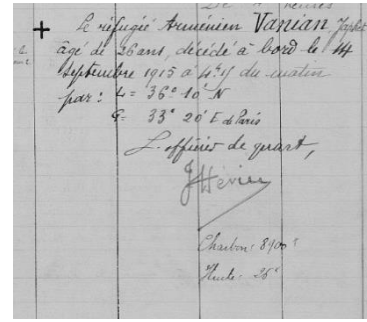 + Le réfugié Arménien Vanian Japhet
âgé de 26 ans, décédé à bord le 14
Septembre 1915 à 4h 15 du matin
par: L = 36° 10' N
G = 33° 20' E de Paris
L'officier de quart,
Charbon: 8900
Huile: 26